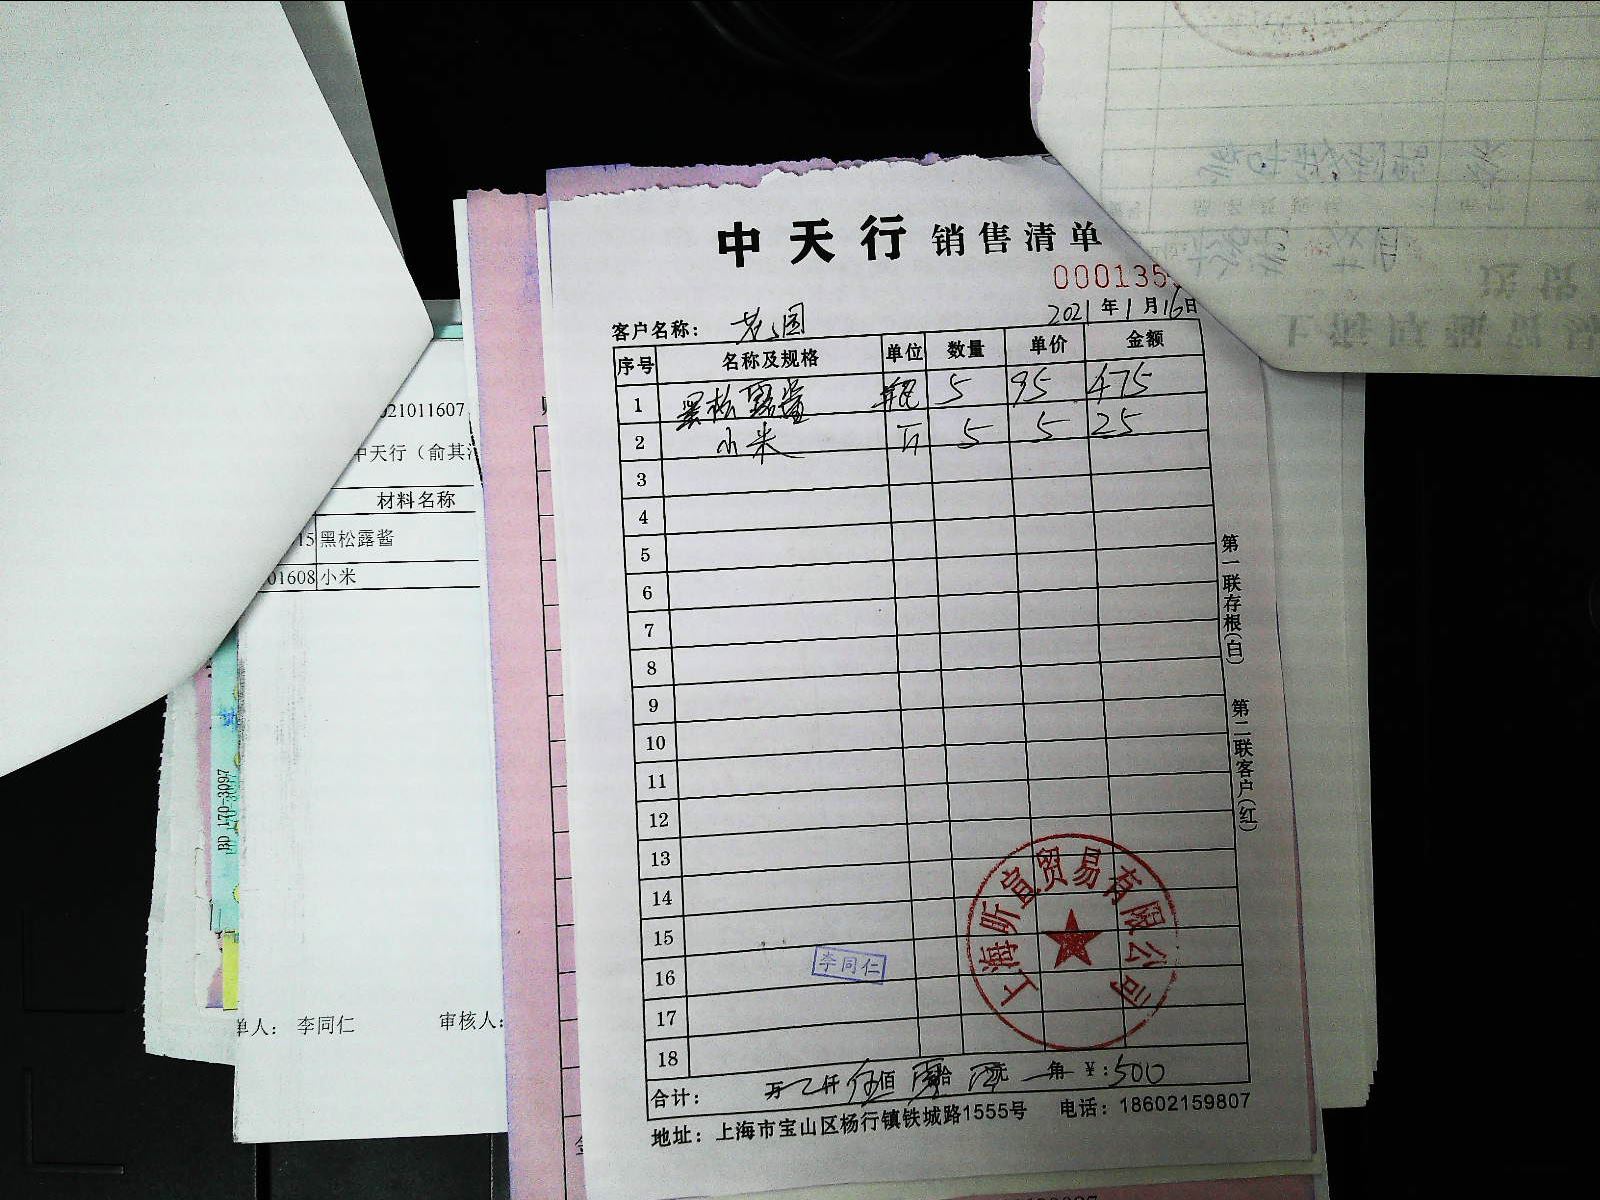 中天行 销售清单
000135
2021年1月16日
客户名称：
序号 名称及规格 单位 数量 单价 金额
1 黑松露酱 瓶 5 95 475
2 小米 斤 5 5 25
3
4
5
6
7
8
9
10
11
12
13
14
15
16
17
18
李同仁
上海昕宣贸易有限公司
合计： 万 仟 伍佰 拾 元 角 ¥：500
地址：上海市宝山区杨行镇铁城路1555号 电话：18602159807
第一联存根(白) 第二联客户(红)
021011607
中天行（俞其
材料名称
15 黑松露酱
01608 小米
单人： 李同仁 审核人：
BD 170-3097